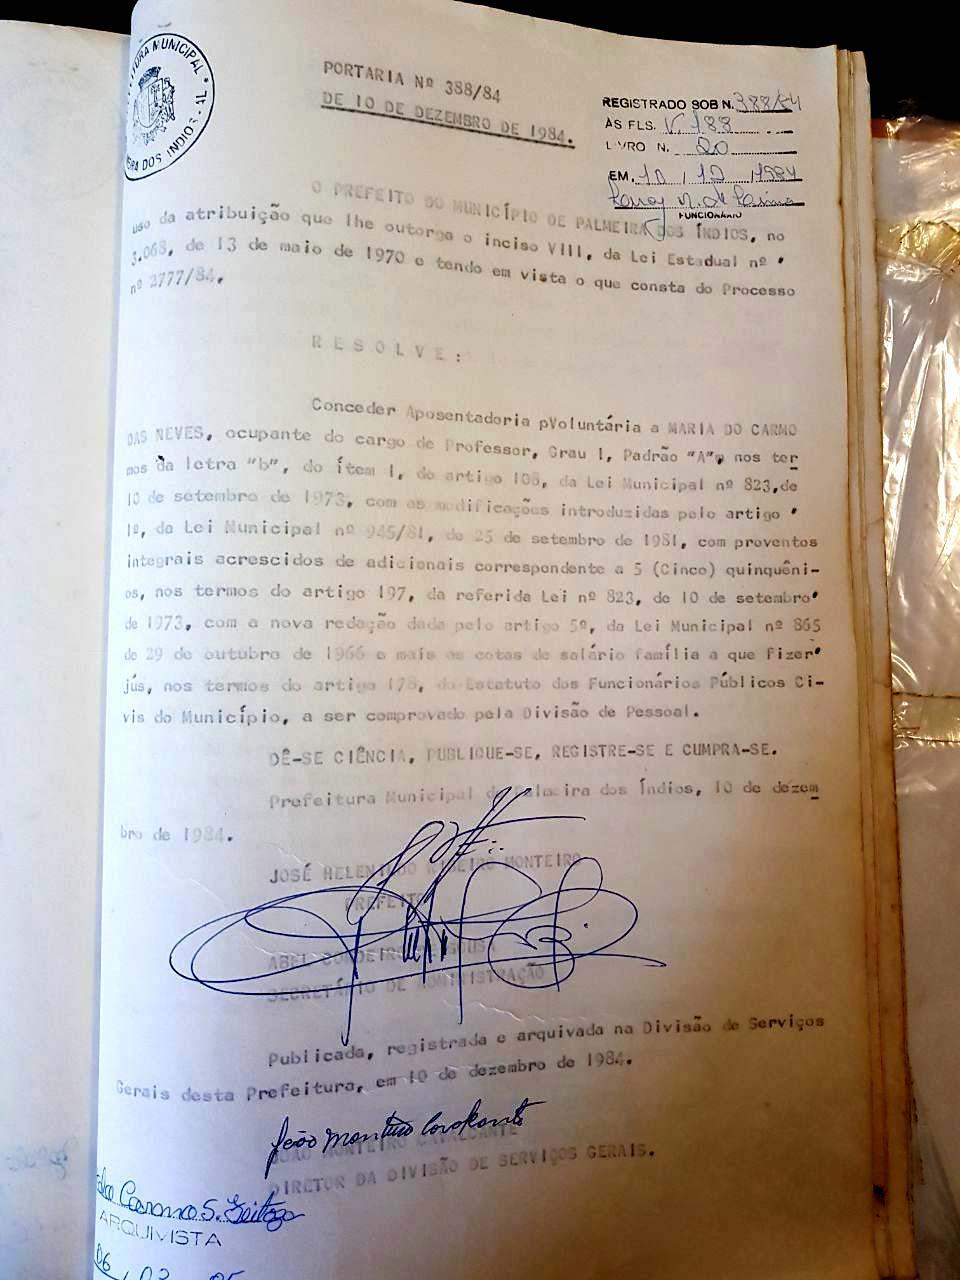 PORTARIA Nº 388/84
DE 10 DE DEZEMBRO DE 1984.
REGISTRADO SOB N. 388/84
ÀS FLS. V. 188
LIVRO N. 20
EM, 10, 12, 1984
FUNCIONÁRIO
O PREFEITO DO MUNICÍPIO DE PALMEIRA DOS ÍNDIOS, no
uso da atribuição que lhe outorga o inciso VIII, da Lei Estadual nº '
3.068, de 13 de maio de 1970 e tendo em vista o que consta do Processo
nº 2777/84,
R E S O L V E :
Conceder Aposentadoria pVoluntária a MARIA DO CARMO
DAS NEVES, ocupante do cargo de Professor, Grau I, Padrão "A", nos ter
mos da letra "b", do ítem I, do artigo 108, da Lei Municipal nº 823,de
10 de setembro de 1973, com as modificações introduzidas pelo artigo '
1º, da Lei Municipal nº 945/81, de 25 de setembro de 1981, com proventos
integrais acrescidos de adicionais correspondente a 5 (Cinco) quinquêni-
os, nos termos do artigo 197, da referida Lei nº 823, de 10 de setembro'
de 1973, com a nova redação dada pelo artigo 5º, da Lei Municipal nº 865
de 29 de outubro de 1966 e mais as cotas de salário família a que fizer'
jús, nos termos do artigo 178, do Estatuto dos Funcionários Públicos Ci-
vis do Município, a ser comprovado pela Divisão de Pessoal.
DÊ-SE CIÊNCIA, PUBLIQUE-SE, REGISTRE-SE E CUMPRA-SE.
Prefeitura Municipal de Palmeira dos Índios, 10 de dezem
bro de 1984.
JOSÉ HELENILDO RIBEIRO MONTEIRO
PREFEITO
ABEL CORDEIRO DE SOUSA
SECRETÁRIO DE ADMINISTRAÇÃO
Publicada, registrada e arquivada na Divisão de Serviços
Gerais desta Prefeitura, em 10 de dezembro de 1984.
João Monteiro Cavalcante
JOÃO MONTEIRO CAVALCANTE
DIRETOR DA DIVISÃO DE SERVIÇOS GERAIS.
ARQUIVISTA